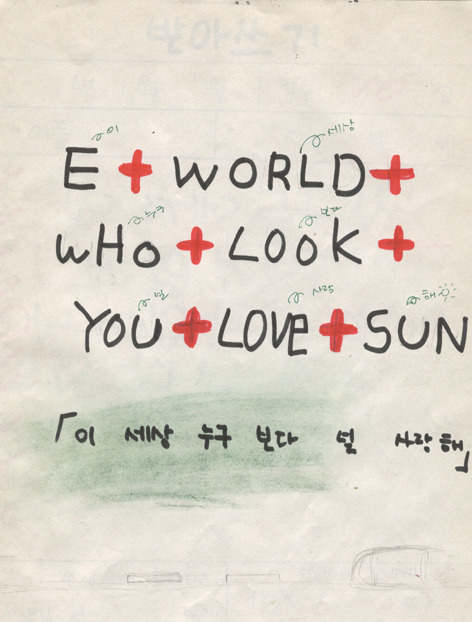 받아쓰기
이 세상
E + WORLD +
누구 보다
wHo + LOOK +
널 사랑 해
YOU + LOVE + SUN
「이 세상 누구 보다 널 사랑해」